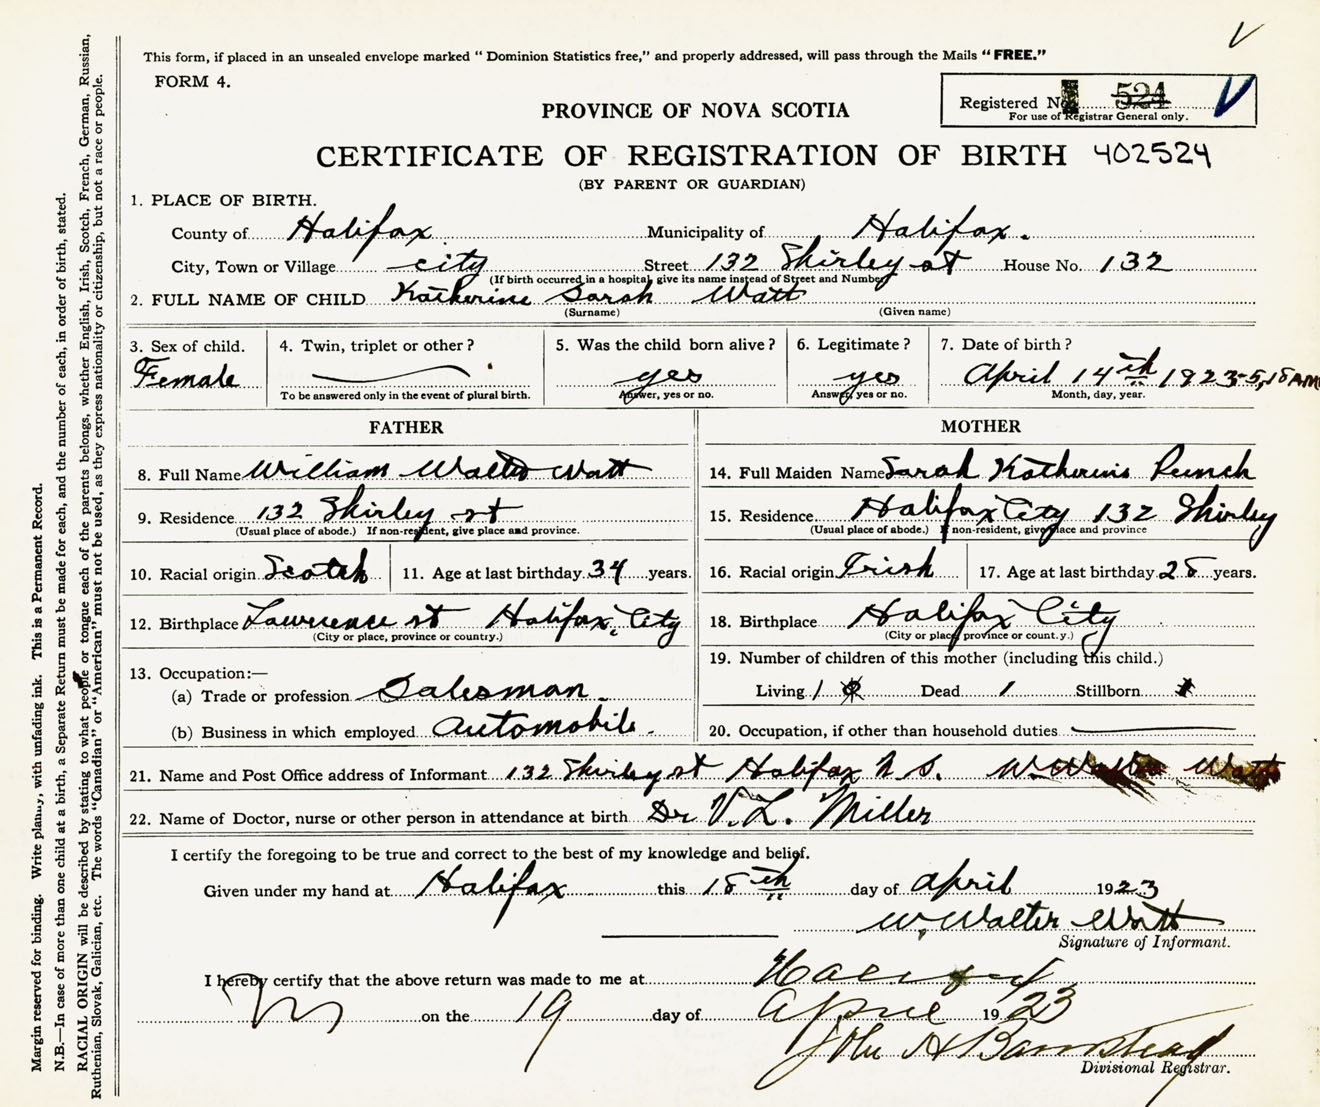 This form, if placed in an unsealed envelope marked "Dominion Statistics free," and properly addressed, will pass through the Mails "FREE."
FORM 4.
Registered No. 524
For use of Registrar General only.
PROVINCE OF NOVA SCOTIA
CERTIFICATE OF REGISTRATION OF BIRTH 402524
(BY PARENT OR GUARDIAN)
1. PLACE OF BIRTH.
County of Halifax Municipality of Halifax.
City, Town or Village city Street 132 Shirley st House No. 132
(If birth occurred in a hospital, give its name instead of Street and Number)
2. FULL NAME OF CHILD Katherine Sarah Watt
(Surname) (Given name)
3. Sex of child. 4. Twin, triplet or other? 5. Was the child born alive? 6. Legitimate? 7. Date of birth?
Female yes yes April 14th 1923-5,15 AM
To be answered only in the event of plural birth. Answer, yes or no. Answer, yes or no. Month, day, year.
FATHER MOTHER
8. Full Name William Walter Watt 14. Full Maiden Name Sarah Katherine Punch
9. Residence 132 Shirley st 15. Residence Halifax City 132 Shirley
(Usual place of abode.) If non-resident, give place and province. (Usual place of abode.) If non-resident, give place and province
10. Racial origin Scotch 11. Age at last birthday 34 years. 16. Racial origin Irish 17. Age at last birthday 28 years.
12. Birthplace Lawrence st Halifax, City 18. Birthplace Halifax City
(City or place, province or country.) (City or place, province or count.y.)
13. Occupation:— 19. Number of children of this mother (including this child.)
(a) Trade or profession Salesman. Living 1 Dead 1 Stillborn
(b) Business in which employed Automobile. 20. Occupation, if other than household duties
21. Name and Post Office address of Informant 132 Shirley st Halifax N.S. W. Walter Watt
22. Name of Doctor, nurse or other person in attendance at birth Dr V. L. Miller
I certify the foregoing to be true and correct to the best of my knowledge and belief.
Given under my hand at Halifax this 18th day of april 1923
W. Walter Watt
Signature of Informant.
I hereby certify that the above return was made to me at Halifax
on the 19 day of april 1923
John A Barnstead
Divisional Registrar.
Margin reserved for binding. Write plainly, with unfading ink. This is a Permanent Record.
N.B.—In case of more than one child at a birth, a Separate Return must be made for each, and the number of each, in order of birth, stated.
RACIAL ORIGIN will be described by stating to what people or tongue each of the parents belongs, whether English, Irish, Scotch, French, German, Russian,
Ruthenian, Slovak, Galician, etc. The words "Canadian" or "American" must not be used, as they express nationality or citizenship, but not a race or people.